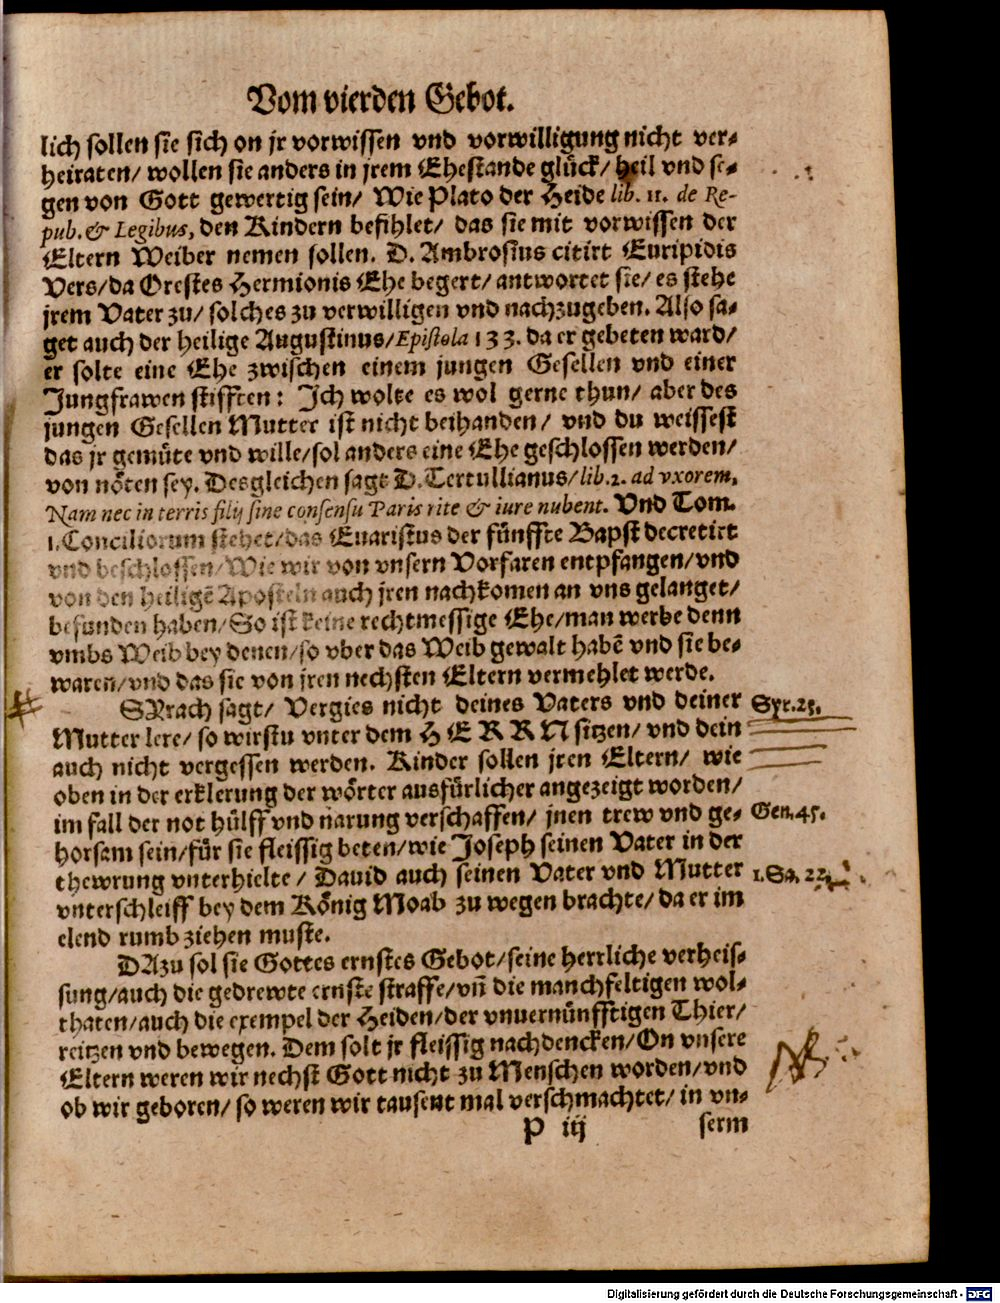 Vom vierden Gebot.
lich sollen sie sich on jr vorwissen vnd vorwilligung nicht ver-
heiraten/ wollen sie anders in jrem Ehestande glück/ heil vnd se-
gen von Gott gewertig sein/ Wie Plato der Heide lib. 11. de Re-
pub. & Legibus, den Kindern befihlet/ das sie mit vorwissen der
Eltern Weiber nemen sollen. D. Ambrosius citirt Euripidis
Vers/ da Orestes Hermionis Ehe begert/ antwortet sie/ es stehe
jrem Vater zu/ solches zu verwilligen vnd nachzugeben. Also sa-
get auch der heilige Augustinus/ Epistola 133. da er gebeten ward/
er solte eine Ehe zwischen einem jungen Gesellen vnd einer
Jungfrawen stifften: Ich wolte es wol gerne thun/ aber des
jungen Gesellen Mutter ist nicht beihanden/ vnd du weissest
das jr gemüte vnd wille/ sol anders eine Ehe geschlossen werden/
von nöten sey. Desgleichen sagt D. Tertullianus/ lib. 2. ad vxorem,
Nam nec in terris filij sine consensu Patris rite & iure nubent. Vnd Tom.
1. Conciliorum stehet/ das Euaristus der fünffte Bapst decretirt
vnd beschlossen/ Wie wir von vnsern Vorfaren entpfangen/ vnd
von den heiligē Aposteln auch jren nachkomen an vns gelanget/
befunden haben/ So ist keine rechtmessige Ehe/ man werbe denn
vmbs Weib bey denen/ so vber das Weib gewalt habē vnd sie be-
waren/ vnd das sie von jren nechsten Eltern vermehlet werde.
SYrach sagt/ Vergies nicht deines Vaters vnd deiner
Syr. 23.
Mutter lere/ so wirstu vnter dem HERRN sitzen/ vnd dein
auch nicht vergessen werden. Kinder sollen jren Eltern/ wie
oben in der erklerung der wörter ausfürlicher angezeigt worden/
im fall der not hülff vnd narung verschaffen/ jnen trew vnd ge-
Gen. 45.
horsam sein/ für sie fleissig beten/ wie Joseph seinen Vater in der
thewrung vnterhielte/ Dauid auch seinen Vater vnd Mutter
1. Sa. 22.
vnterschleiff bey dem König Moab zu wegen brachte/ da er im
elend rumb ziehen muste.
DAzu sol sie Gottes ernstes Gebot/ seine herrliche verheis-
sung/ auch die gedrewte ernste straffe/ vñ die manchfeltigen wol-
thaten/ auch die exempel der Heiden/ der vnuernünfftigen Thier/
reitzen vnd bewegen. Dem solt jr fleissig nachdencken/ On vnsere
Eltern weren wir nechst Gott nicht zu Menschen worden/ vnd
ob wir geboren/ so weren wir tausent mal verschmachtet/ in vn-
P iij
serm
Digitalisierung gefördert durch die Deutsche Forschungsgemeinschaft - DFG